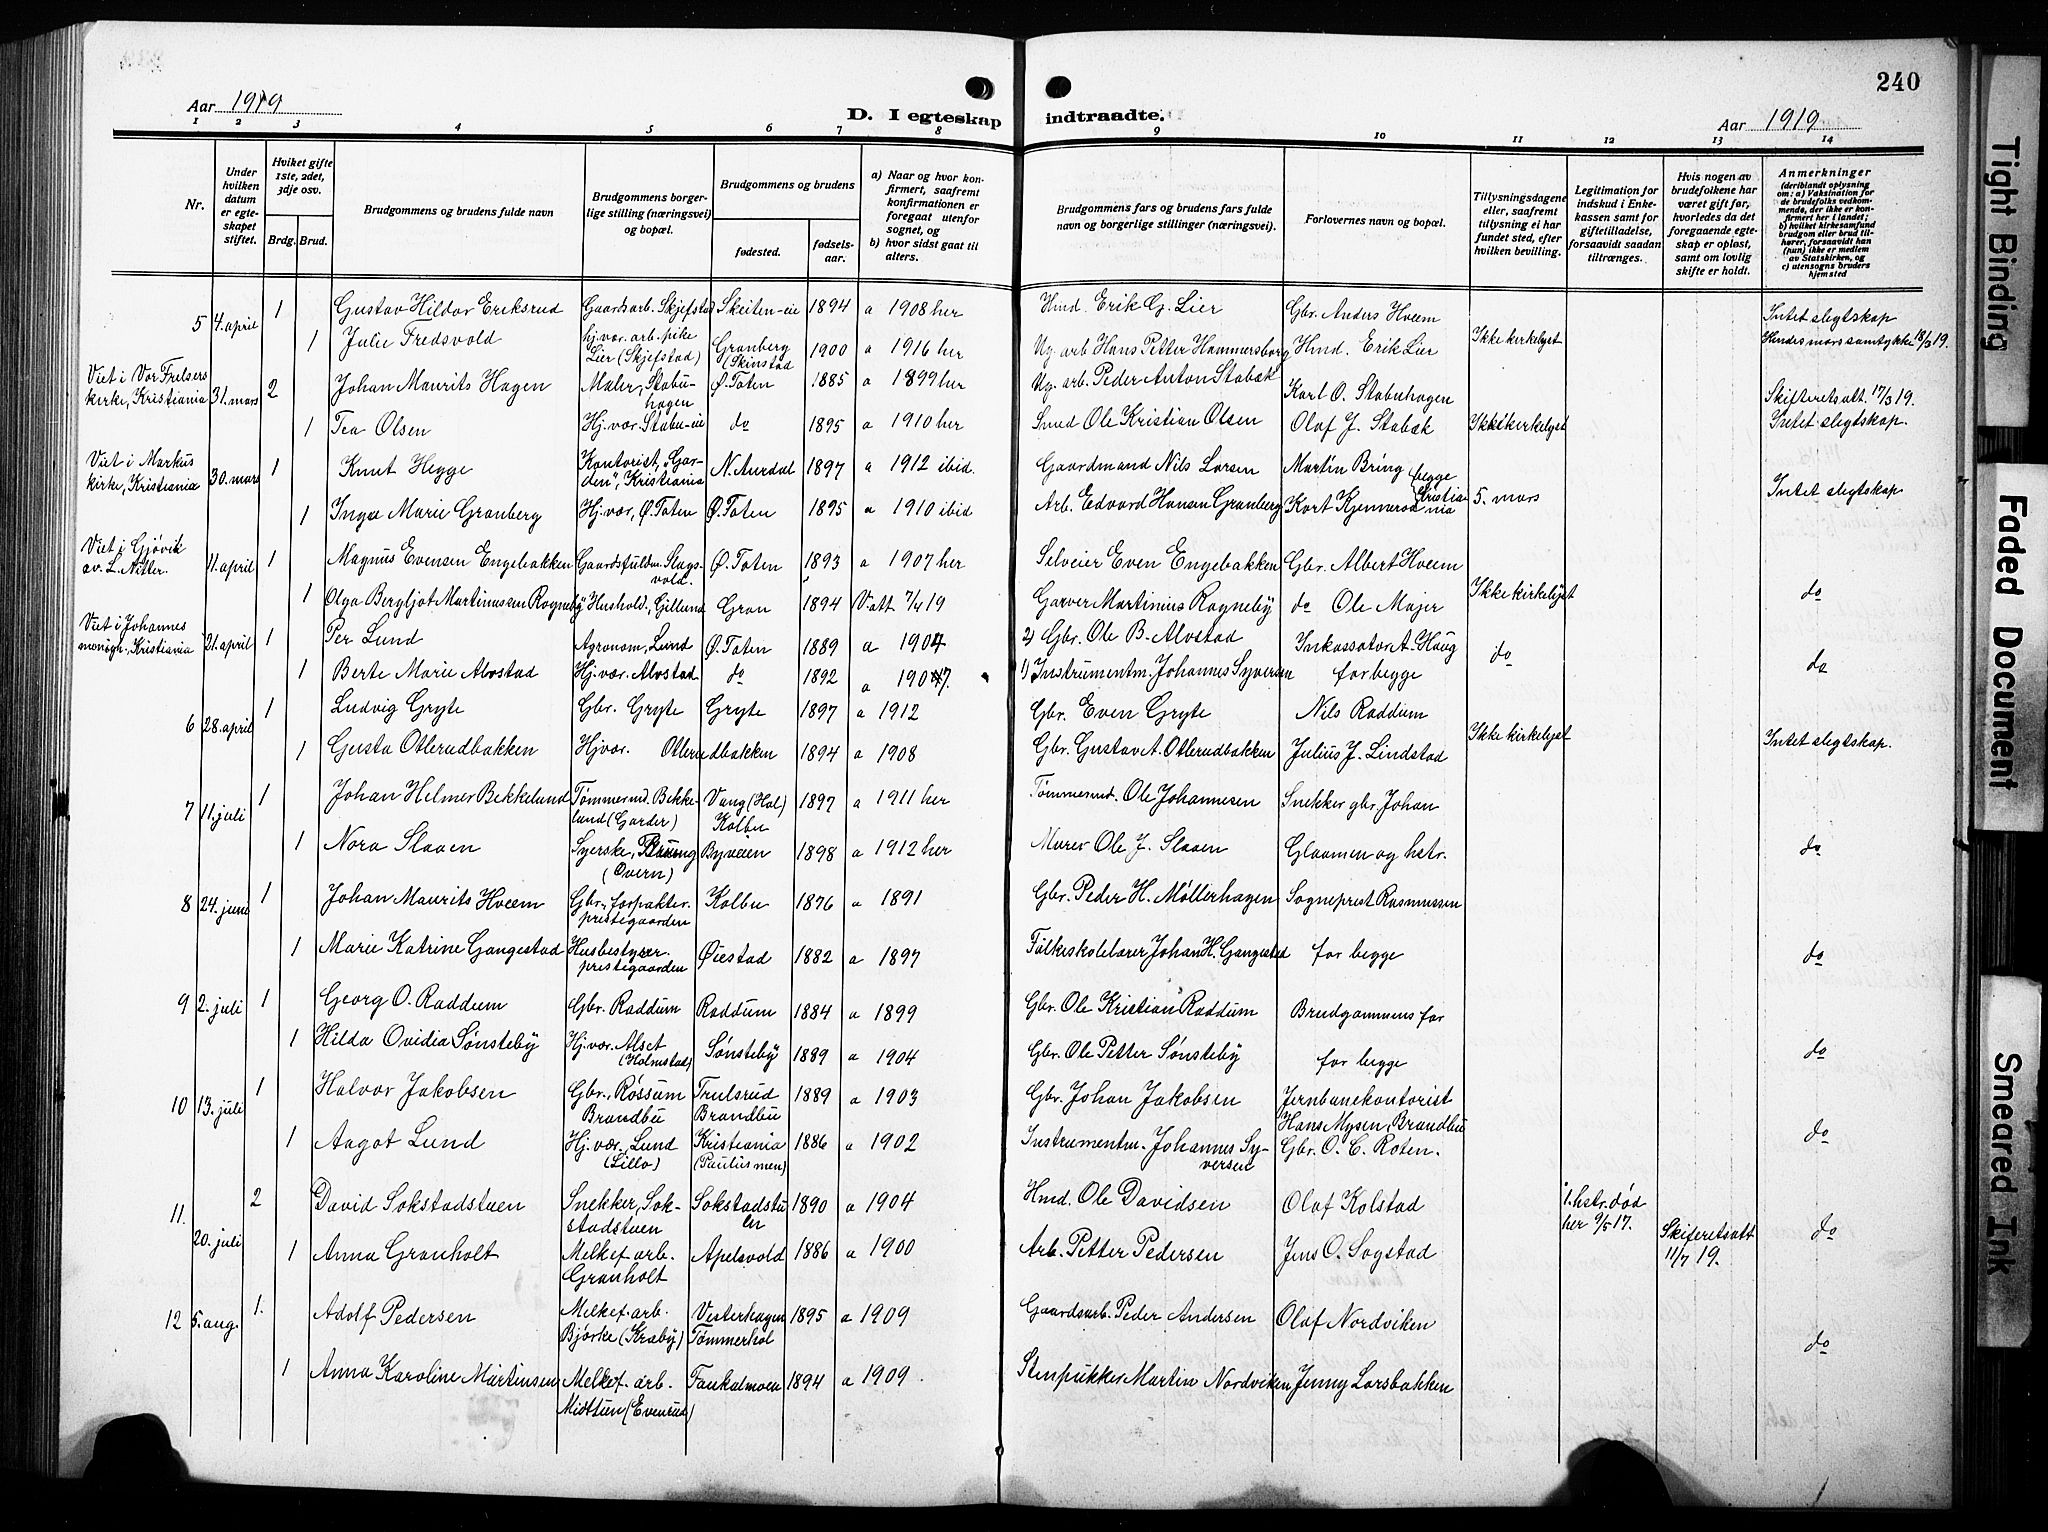 240
Aar 1919
D. I egteskap indtraadte.
Aar 1919
1 2 3 4 5 6 7 8 9 10 11 12 13 14
Nr.
Under hvilken datum er egteskapet stiftet.
Hviket gifte 1ste, 2det, 3dje osv.
Brdg. Brud.
Brudgommens og brudens fulde navn
Brudgommens borgerlige stilling (næringsvei) og bopæl.
Brudgommens og brudens
fødested.
fødselsaar.
a) Naar og hvor konfirmert, saafremt konfirmationen er foregaat utenfor sognet, og
b) hvor sidst gaat til alters.
Brudgommens fars og brudens fars fulde navn og borgerlige stillinger (næringsvei).
Forlovernes navn og bopæl.
Tillysningsdagene eller, saafremt tillysning ei har fundet sted, efter hvilken bevilling.
Legitimation for indskud i Enkekassen samt for giftetilladelse, forsaavidt saadan tiltrænges.
Hvis nogen av brudefolkene har været gift før, hvorledes da det foregaaende egteskap er opløst, samt om lovlig skifte er holdt.
Anmerkninger
(deriblandt oplysning om: a) Vaksination for de brudefolks vedkommende, der ikke er konfirmert her i landet; b) hvilket kirkesamfund brudgom eller brud tilhører, forsaavidt han (hun) ikke er medlem av Statskirken, og c) utensogns bruders hjemsted
5 4. april 1 Gustav Hildor Eriksrud Gaardsarb. Skjefstad Skeiten-eie 1894 a 1908 her Hmd. Erik G. Lier Gbr. Anders Hveem Intet slegtskap
1 Julie Fredsvold hj. vær. arb. pike Lier (Skjefstad) Granberg (Skinstad 1900 a 1916 her Ug. arb Hans Petter Hammersborg Hmd. Erik Lier Ikke kirkelyst Hendes mors samtykke 18/3 19.
Viet i Vor Frelsers kirke, Kristiania 31. mars 2 Johan Maurits Hagen Maler, Stabuhagen Ø. Toten 1885 a 1899 her Ug. arb. Peder Anton Stabæk Karl O. Stabuhagen Skifteretsatt. 17/3 19.
1 Tea Olsen Hj. vær. Stabu-eie do 1895 a 1910 her Smed Ole Kristian Olsen Olaf J. Stabæk Ikke kirkelyst Intet slegtskap.
Viet i Markus kirke, Kristiania 30. mars 1 Knut Hegge Kontorist, "Garden", Kristiania N. Aurdal 1897 a 1912 ibid. Gaardmand Nils Larsen Martin Bring begge Kristiania
1 Inga Marie Granberg Hj. vær, Ø. Toten Ø. Toten 1895 a 1910 ibid Arb. Edvard Hansen Granberg Kart Kjennerød 5. mars Intet slegtskap
Viet i Gjøvik av. L. Nitter. 11. april 1 Magnus Evensen Engebakken Gaardsfuldm. Stagsvold. Ø. Toten 1893 a 1907 her Selveier Even Engebakken Gbr. Albert Hveem
1 Olga Bergljot Martinussen Rogneby Hushold., Gillund Gran 1894 Vatt 7/4 19 Garver Martinius Rogneby do Ole Majer Ikke kirkelyst do
Viet i Johannes menigh., Kristiania 21. april 1 Per Lund Agronom, Lund Ø. Toten 1889 a 1904 2) Gbr. Ole B. Alvstad Inkassator A. Haug
1 Berte Marie Alvstad Hj. vær. Alvstad do 1892 a 1907. 1) Instrumentm. Johannes Syversen for begge do do
6 28. april 1 Ludvig Gryte Gbr. Gryte Gryte 1897 a 1912 Gbr. Even Gryte Nils Raddum
1 Gusta Otlerudbakken Hj vær. Otlerudbakken 1894 a 1908 Gbr. Gustav A. Otlerudbakken Julius J. Lindstad Ikke kirkelyst Intet slegtskap.
7 11. juli 1 Johan Helmer Bekkelund Tømmermd. Bekkelund (Garder) Vang (Hal) Kolbu 1897 a 1911 her Tømmermd. Ole Johannesen Snekker gbr. Johan
1 Nora Slaaen Syerske, Bruung (Overn) Byveien 1898 a 1912 her Murer Ole J. Slaaen Glaamen og hstr. do
8 24. juni 1 Johan Maurits Hveem Gbr., forpakter. prestegaarden Kolbu 1876 a 1891 Gbr. Peder H. Møllerhagen Sogneprest Rasmussen
1 Marie Katrine Gangestad Husbestyrer. prestegaarden Øiestad 1882 a 1897 Folkeskolelærer Johan H. Gangestad for begge do
9 2. juli 1 Georg O. Raddum Gbr. Raddum Raddum 1884 a 1899 Gbr. Ole Kristian Raddum Brudgommens far
1 Hilda Ovidia Sønsteby Hj. vær. Alset (Holmstad) Sønsteby 1889 a 1904 Gbr. Ole Petter Sønsteby for begge do
10 13. juli 1 Halvor Jakobsen Gbr., Røssum Brandbu Trulsrud Brandbu 1889 a 1903 Gbr. Johan Jakobsen Jernbanekontorist Hans Mysen, Brandbu
1 Aagot Lund Hj. vær., Lund (Lillo) Kristiania (Paulus men) 1886 a 1902 Instrumentm. Johannes Syversen Gbr. O. C. Roten. do
11. 20. juli 2 David Sokstadstuen Snekker, Sokstadstuen Sokstadstuen 1890 a 1904 Hmd. Ole Davidsen Olaf Kolstad 1. hstr. død her 9/5 17. Skifteretsatt 11/7 19. do
1 Anna Granholt Melkef. arb. Granholt Apelsvold 1886 a 1900 Arb. Petter Pedersen Jens O. Sogstad
12 5. aug. 1. Adolf Pedersen Melkef. arb. Bjørke (Kraby) Vesterhagen Tømmerhol 1895 a 1909 Gaardsarb. Peder Andersen Olaf Nordviken
1 Anna Karoline Martinsen Melkef. arb. Midtsuen (Evenrud) Faukalmoen 1894 a 1909. Stenpukker Martin Nordviken Jenny Larsbakken do
Tight Binding
Faded Document
Smeared Ink